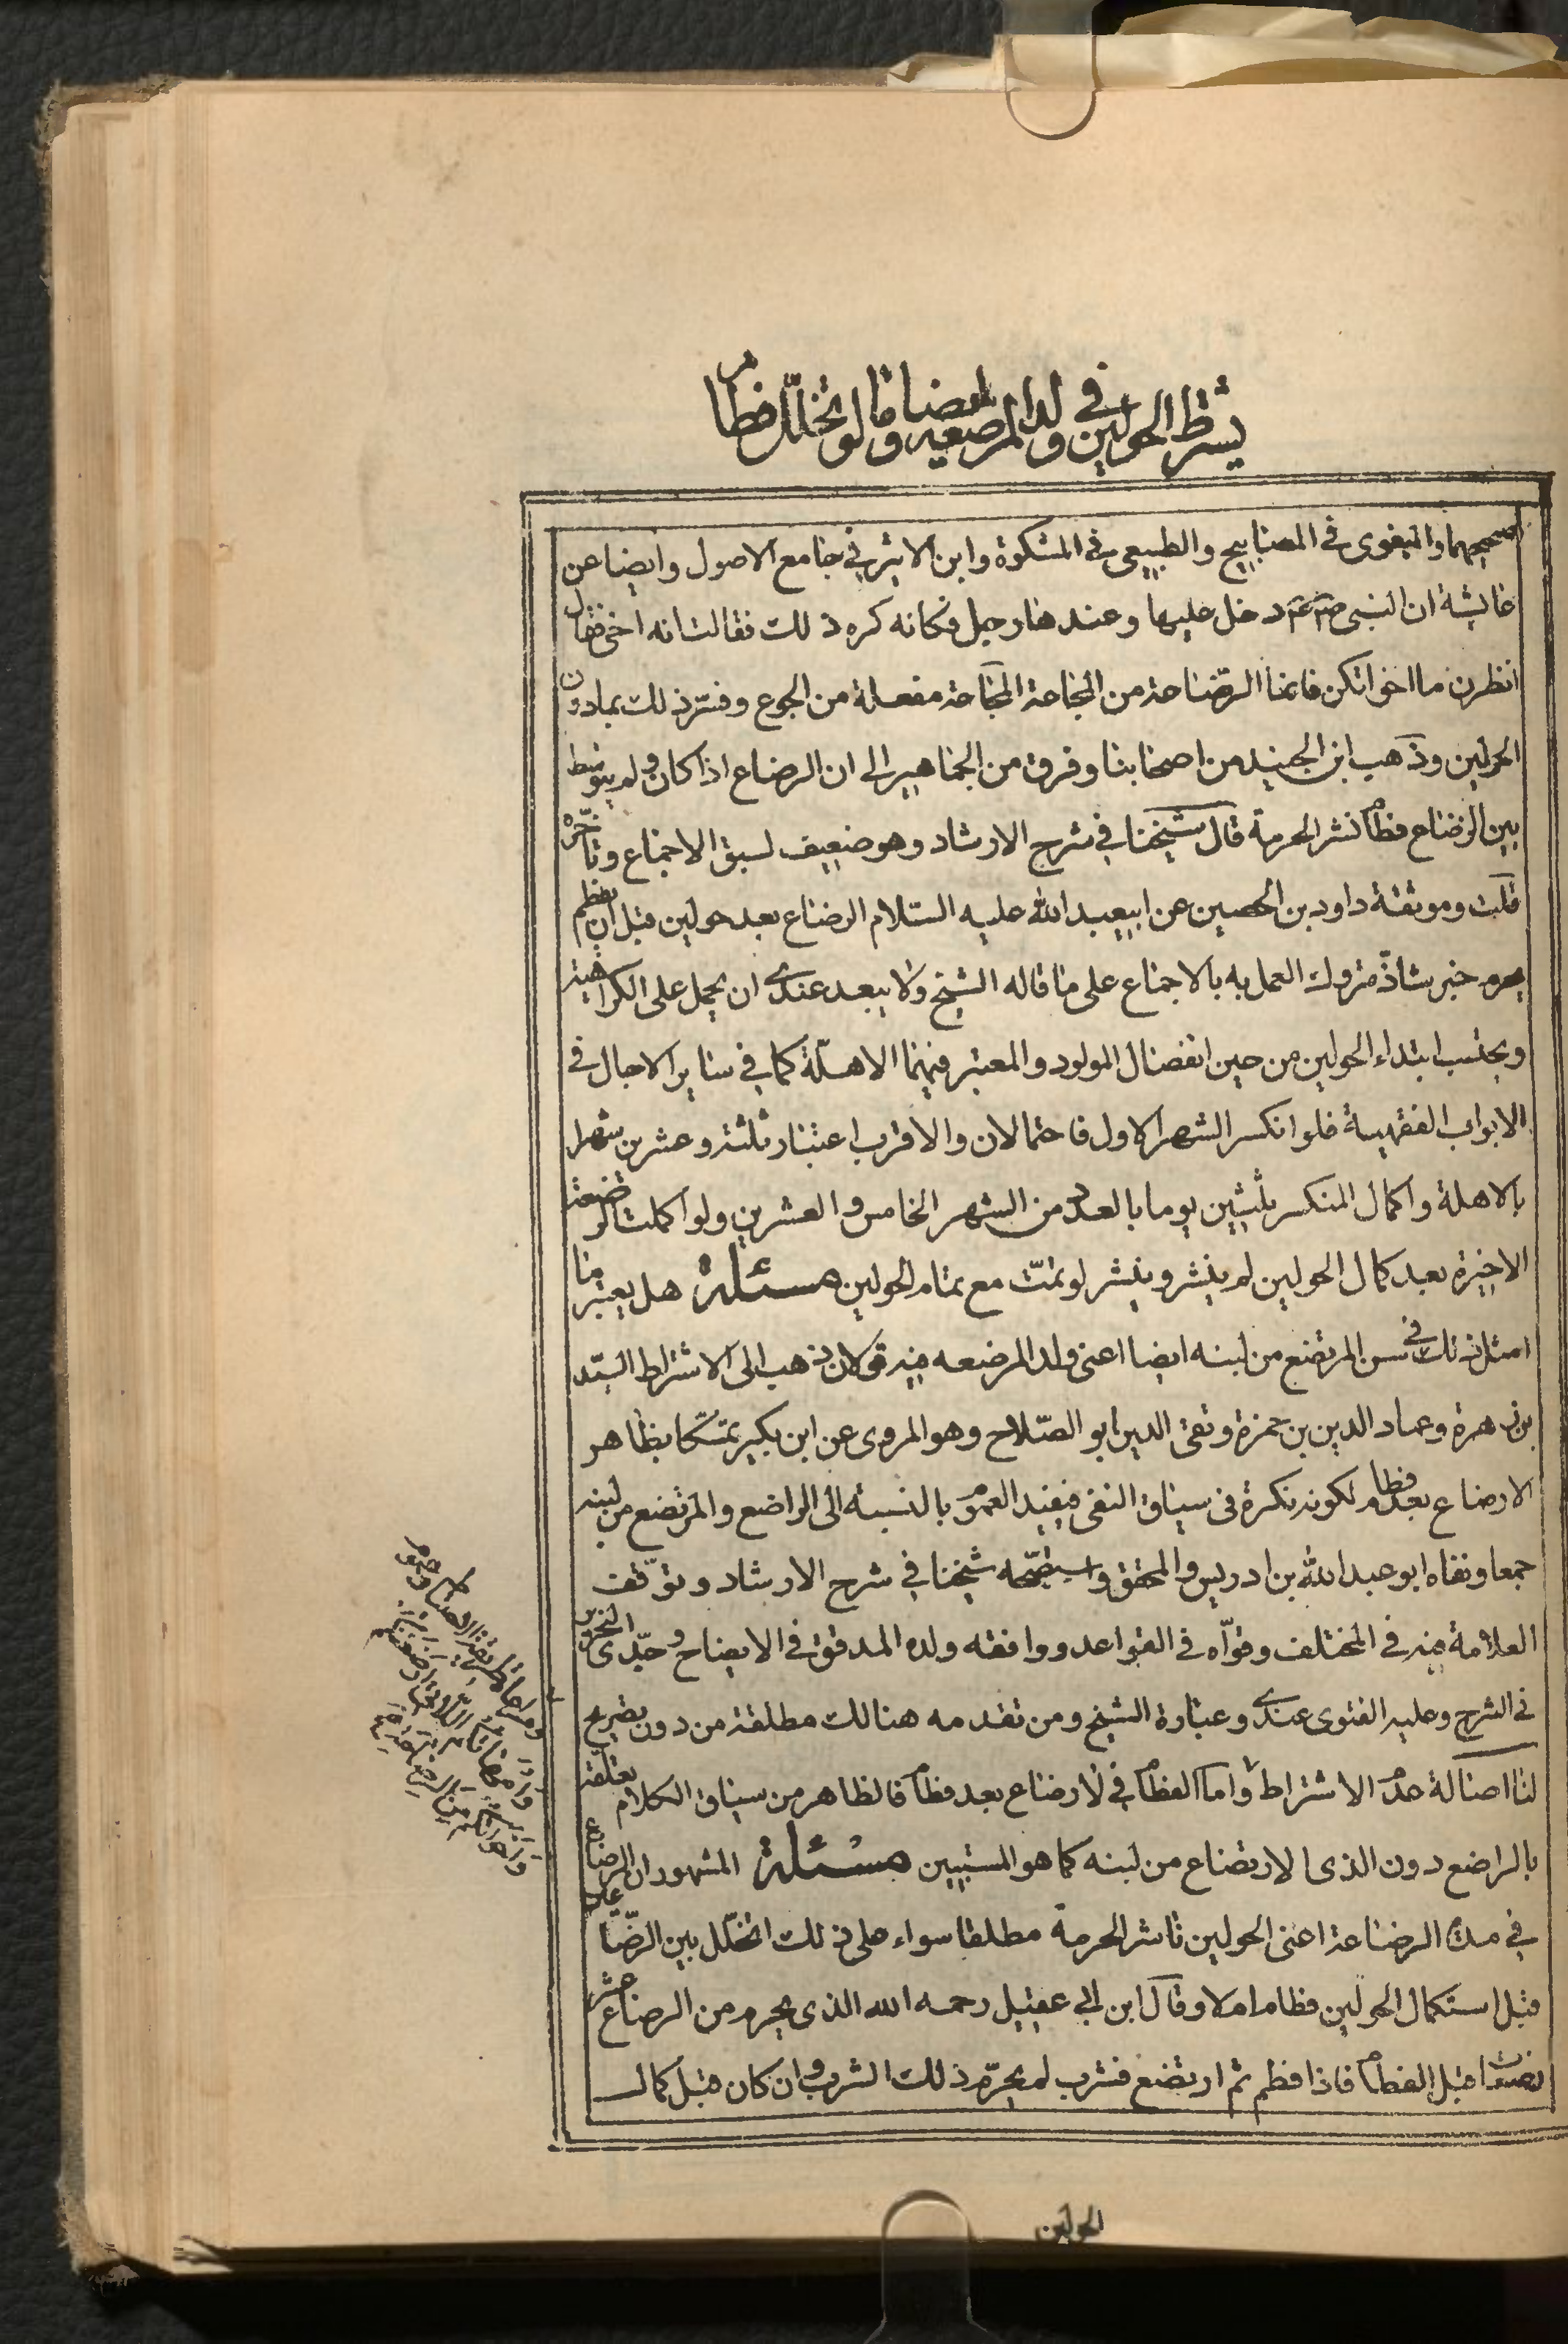 يشترط الحولين في ولد المرضعة ايضا وما لو تخلّل فطام
صحيحهما والبغوى فى المصابيح والطيبى فى المشكوة وابن الاثير فى جامع الاصول وايضا عن
عائشة ان النبى صم عم دخل عليها وعندها رجل فكانه كره ذلك فقالت انه اخى فقال
انظرن ما اخواتكن فانما الرّضاعة من المجاعة المجاعة مفعلة من الجوع وفسّر ذلك بما دون
الحولين وذهب ابن الجنيد من اصحابنا وفرق من الجماهير الى ان الرضاع اذا كان ولم يتوسط
بين الرضاع فطام نشر الحرمة قال شيخنا فى شرح الارشاد وهو ضعيف لسبق الاجماع وتاخّره
قلت وموثقة داود بن الحصين عن ابيعبد الله عليه السّلام الرضاع بعد حولين قبل ان يفطم
يحرم خبر شاذّ متروك العمل به بالاجماع على ما قاله الشيخ ولا يبعد عندى ان يحمل على الكراهية
ويحتسب ابتداء الحولين من حين انفصال المولود والمعتبر فيهما الاهلّة كما فى ساير الاجال فى
الابواب الفقهية فلو انكسر الشهر الاول فاحتمالان والاقرب اعتبار ثلثة وعشرين شهرا
بالاهلة واكمال المنكسر بثلثين يوما بالعدد من الشهر الخامس والعشرين ولو اكملت الرضعة
الاخيرة بعد كمال الحولين لم ينشر وينشر لو تمّت مع تمام الحولين مسئلة هل يعتبر ما
امثل ذلك فى سن المرتضع من لبنه ايضا اعنى ولد المرضعه فيه قولان ذهب الى الاشتراط السيّد
بن زهرة وعماد الدين بن حمزة وتقى الدين ابو الصّلاح وهو المروى عن ابن بكير تمسّكا بظاهر
لا رضاع بعد فطام لكونه نكرة فى سياق النفى فيفيد العموم بالنسبة الى الراضع والمرتضع من لبنه
جمعا ونفاه ابو عبد الله بن ادريس والمحقق واستضحّه شيخنا فى شرح الارشاد وتوّقف
العلامة فيه فى المختلف وقوّاه فى القواعد ووافقه ولده المدقق فى الايضاح وجدّى النحرير
فى الشرح وعليه الفتوى عندى وعبارة الشيخ ومن تقدمه هنالك مطلقة من دون تصريح
لنا اصالة عدم الاشتراط واما الفطام فى لا رضاع بعد فطام فالظاهر من سياق الكلام تعلقه
بالراضع دون الذى الارتضاع من لبنه كما هو المستبين مسئلة المشهور ان الرضاع
فى مدة الرضاعة اعنى الحولين ناشر الحرمة مطلقا سواء على ذلك اتخلّل بين الرضّاعات
قبل استكمال الحولين فطام ام لا وقال ابن ابى عقيل رحمه الله الذى يحرم من الرضاع عشر
رضعات قبل الفطام فاذا فطم ثم ارتضع فشرب لم يحرّم ذلك الشرب وان كان قبل كمال
وامهاتكم اللاتى ارضعنكم
واخواتكم من الرضاعة
الحولين